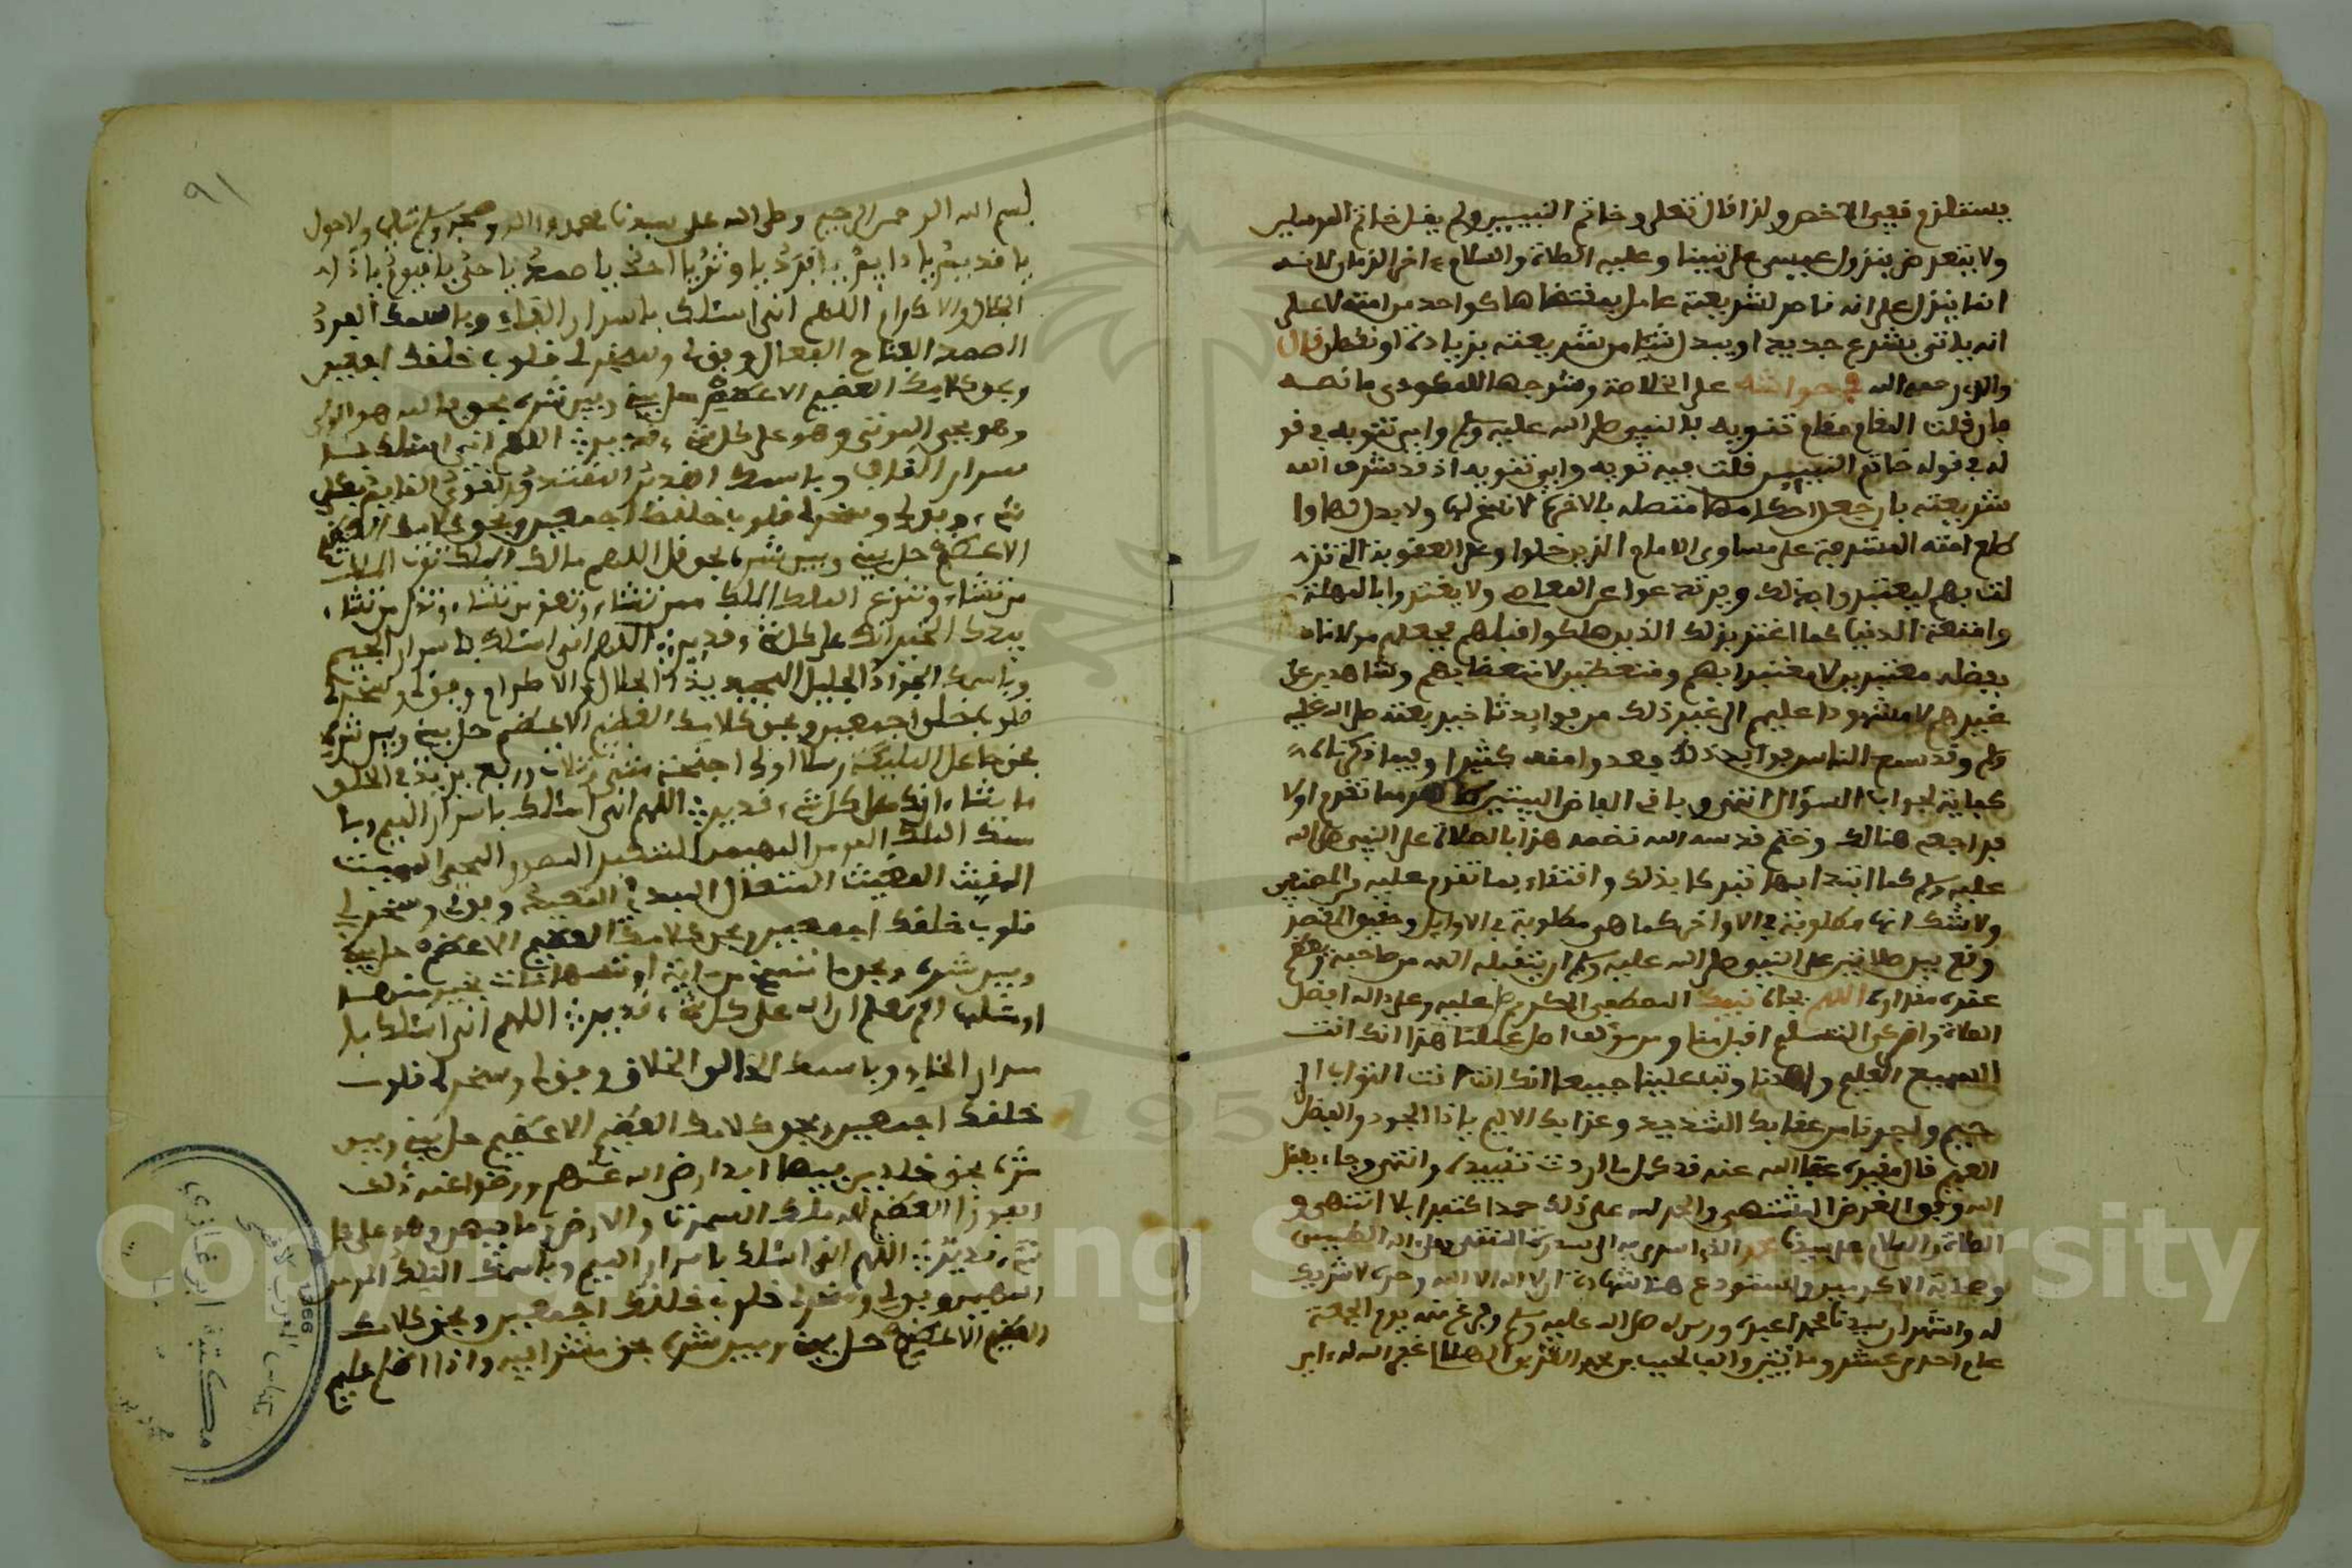 يستلزم نفي الاخص ولذا قال تعلى وخاتم النبيين ولم يقل خاتم المرسلين
ولا يتعرض بنزول عيسى على نبينا وعليه الصلاة والسلام ءاخر الزمان لانه
انما ينزل على انه ناصر لشريعته عامل بمقتضاها كواحد من امته لا على
انه ياتي بشرع جديد او يبدل شيئا من شريعته بزيادة او نقص قال
والدي رحمه الله في حواشيه على الخلاصة وشرحها للمكودي ما نصه
فان قلت المقام مقام تنويه بالنبي صلى الله عليه وسلم واين تنويه في قو
له في قوله خاتم النبيين قلت فيه تنويه واي تنويه اذ قد شرف الله
شريعته بان جعل احكامها متصلة بالاخرة لا نسخ لها ولا بدل لها وا
طلع امته المشرفة على مساوي الامم الذين خلوا وعلى العقوبة التي نز
لت بهم ليعتبروا بذلك ويرتدعوا عن المعاصي ولا يغتروا بالمهلة
وامتعة الدنيا كما اغتر بذلك الذين هلكوا قبلهم فجعلهم مولانا
بفضله معتبرين لا معتبرا بهم ومتعظين لا متعظا بهم وشاهدين على
غيرهم لا مشهودا عليهم الى غير ذلك من فوايد تاخير بعثته صلى الله عليه
وسلم وقد سمع الناس فوايد ذلك وعدوا منه كثيرا وفيما ذكرناه
كفاية لجواب السؤال انتهى وباقي الفاظ البيتين ظاهر مما تقدم اولا
فراجعه هنالك وختم قدسه الله نظمه هذا بالصلاة على النبي صلى الله
عليه وسلم كما ابتدا بها تبركا بذلك واقتفاء بما تقدم عليه
ولا شك انها مطلوبة في الاواخر كما هي مطلوبة في الاوايل وحقيق
وقع بين صلاتين على النبي صلى الله عليه وسلم ان يتقبله الله من صاحبه
عنده مقداره اللهم بجاه نبيك المصطفى الكريم صل عليه وعلى ءاله افضل
الصلاة وازكى التسليم اقبل منا ومن مؤلف اصل عملنا هذا انك انت
السميع العليم واهدنا وتب علينا جميعا انك انت انت التواب الر
حيم ونجنا من عقابك الشديد وعذابك الاليم ياذا الجود والفضل
العميم قال مقيده عفا الله عنه قد كمل ما اردت تقييده وانتهى وجاء بفضل
الله وفق الغرض المشتهى والحمد لله على ذلك حمدا كثيرا بلا انتهى و
الصلاة والسلام على سيدنا محمد الذي اسري به الى سدرة المنتهى وعلى اله الطيبين
وصحابته الاكرمين ونستودع هنا شهادة ان لا اله الا الله وحده لا شريك
له واشهد ان سيدنا محمدا عبده ورسوله صلى الله عليه وسلم وفرغ منه يوم الجمعة
عام احدى عشر ومائتين والف لحبيب بن محمد غفر الله له ءامين
٩١
بسم الله الرحمن الرحيم وصلى الله على سيدنا محمد وءاله وصحبه وسلم تسليما ولا حول
يا قديم يا دايم يا فرد يا وتر يا احد يا صمد يا حي يا قيوم يا ذا
الجلال والاكرام اللهم اني اسئلك باسرار الفاء وباسمك الفرد
الصمد الفتاح الفعال وفق لي وسخر لي قلوب خلقك اجمعين
وبحق كلامك العظيم الاعظم حل بيني وبين شره بحق فالله هو الولي
وهو يحيي الموتى وهو على كل شيء قدير اللهم اني اسئلك با
سرار القاف وباسمك القدير المقتدر القوي القايم بكل
شيء وفق لي وسخر لي قلوب خلقك اجمعين وبحق كلامك العظيم
الاعظم حل بيني وبين شره بحق قل اللهم مالك الملك توتي الملك
من تشاء وتنزع الملك ممن تشاء وتعز من تشاء وتذل من تشاء
بيدك الخير انك على كل شيء قدير اللهم اني اسئلك باسرار الجيم
وباسمك الجواد الجليل المجيد يذا الجلال والاكرام وفق لي وسخر لي
قلوب خلقك اجمعين وبحق كلامك العظيم الاعظم حل بيني وبين شره
بحق جاعل المليكة رسلا اولي اجنحة مثنى وثلاث وربع يزيد في الخلق
ما يشاء ان الله على كل شيء قدير اللهم اني اسئلك باسرار الميم وبا
سمك الملك المومن المهيمن المتكبر المصور المحيي المميت
المغيث المقيت المتعال المبدئ المعيد وفق لي وسخر لي
قلوب خلقك اجمعين بحق كلامك العظيم الاعظم حل بيني
وبين شره وبحق ما ننسخ من ءاية او ننسها نات بخير منها
او مثلها الم تعلم ان الله على كل شيء قدير اللهم اني اسئلك با
سرار الخاء وباسمك الخالق الخلاق وفق لي وسخر لي قلوب
خلقك اجمعين وبحق كلامك العظيم الاعظم حل بيني وبين
شره بحق خلدين فيها ابدا رضي الله عنهم ورضوا عنه ذلك
الفوز العظيم لله ملك السموت والارض وما فيهن وهو على كل
شيء قدير اللهم اني اسئلك باسرار الميم وباسمك الملك المومن
المهيمن وفق لي وسخر لي قلوب خلقك اجمعين وبحق كلامك
العظيم الاعظم حل بيني وبين شره بحق واذا اظلم عليهم
1366
Copyright © King Saud University
195